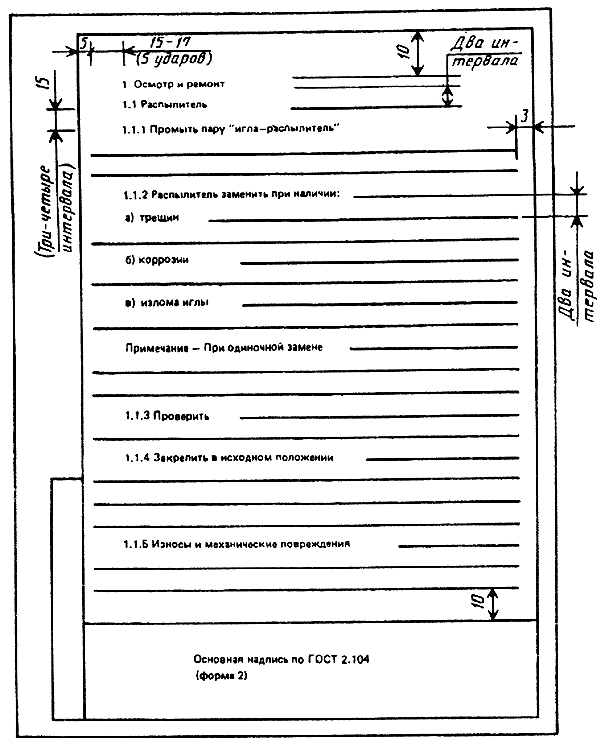 5
15-17
(5 ударов)
10
Два ин-
тервала
15
(Три-четыре
интервала)
1 Осмотр и ремонт
1.1 Распылитель
1.1.1 Промыть пару "игла-распылитель"
3
1.1.2 Распылитель заменить при наличии:
а) трещин
б) коррозии
в) излома иглы
Два ин-
тервала
Примечание – При одиночной замене
1.1.3 Проверить
1.1.4 Закрепить в исходном положении
1.1.5 Износы и механические повреждения
10
Основная надпись по ГОСТ 2.104
(форма 2)